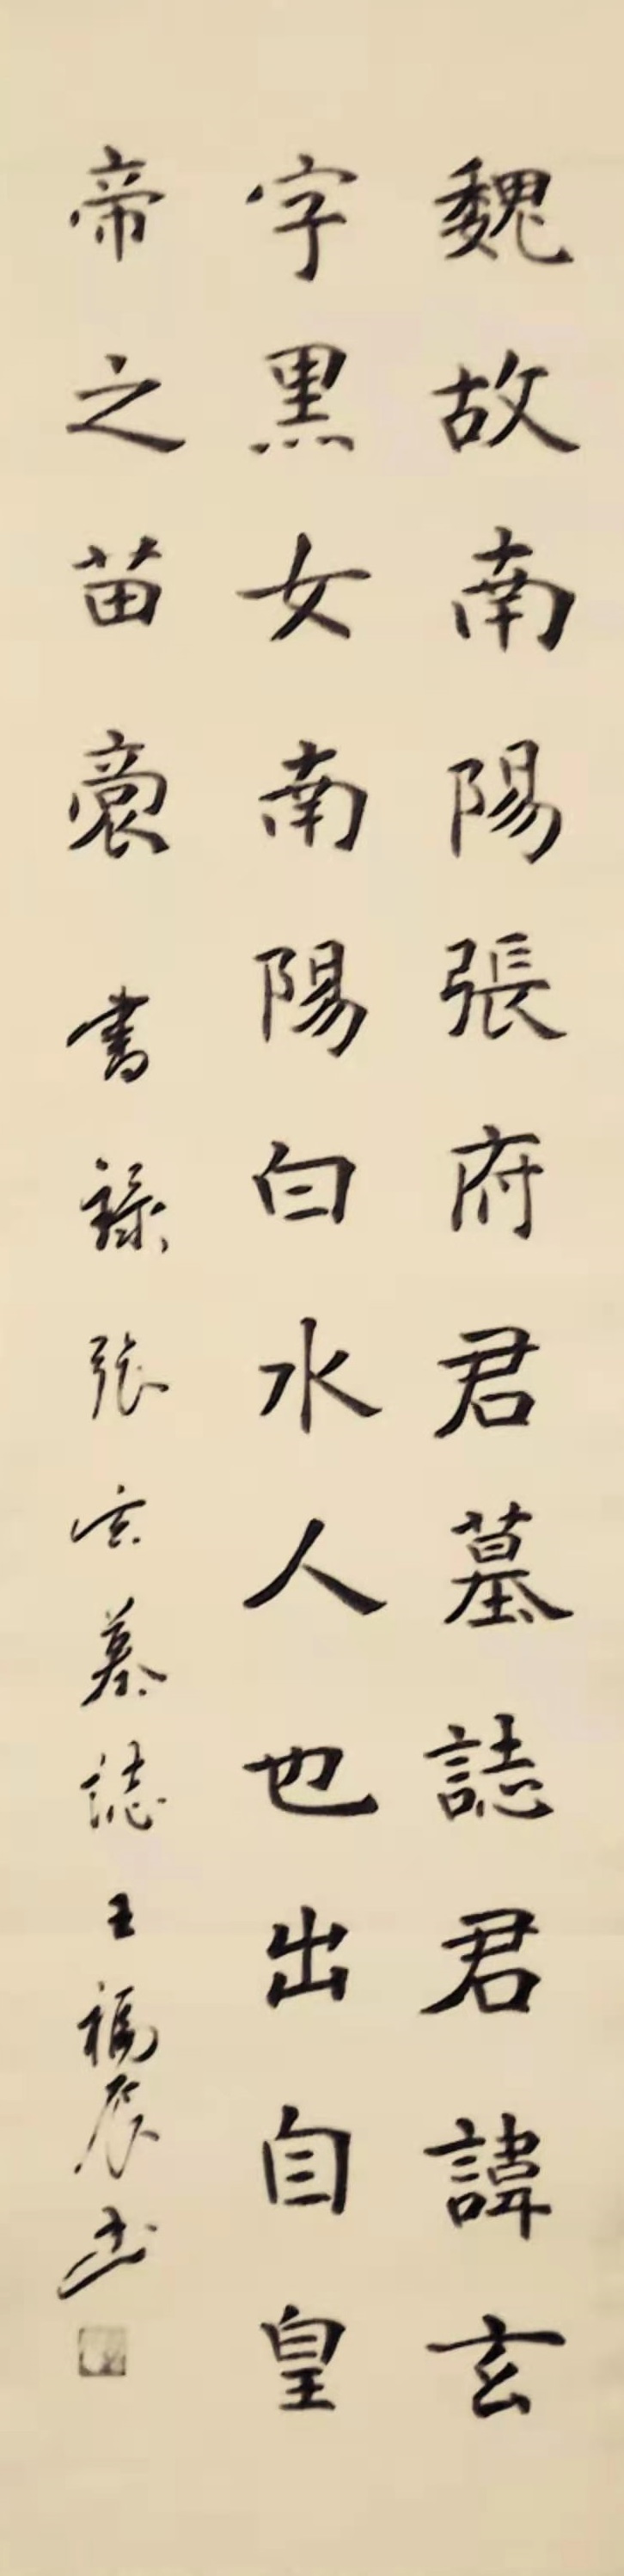 魏故南陽張府君墓誌君諱玄
字黑女南陽白水人也出自皇
帝之苗裔 書錄張玄墓誌 王福辰书